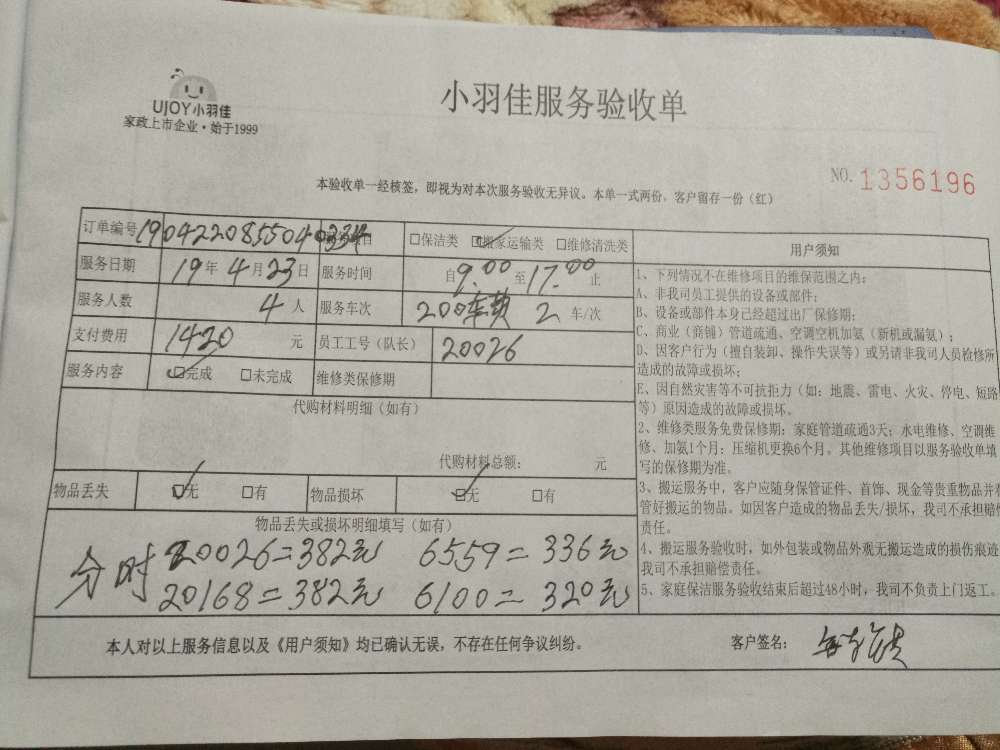 UJOY小羽佳
家政上市企业·始于1999
小羽佳服务验收单
NO. 1356196
本验收单一经核签，即视为对本次服务验收无异议。本单一式两份，客户留存一份（红）
订单编号 190422085504334 服务项目 □保洁类 ☑搬家运输类 □维修清洗类
服务日期 19年4月23日 服务时间 自9:00至17:00止
服务人数 4人 服务车次 200车费 2车/次
支付费用 1420元 员工工号（队长） 20026
服务内容 ☑完成 □未完成 维修类保修期
代购材料明细（如有）
代购材料总额： 元
物品丢失 ☑无 □有 物品损坏 ☑无 □有
物品丢失或损坏明细填写（如有）
分时 20026=382元 6559=336元
20168=382元 6100=320元
用户须知
1、下列情况不在维修项目的维保范围之内：
A、非我司员工提供的设备或部件；
B、设备或部件本身已经超过出厂保修期；
C、商业（商铺）管道疏通、空调空机加氨（新机或漏氨）；
D、因客户行为（擅自装卸、操作失误等）或另请非我司人员检修所
造成的故障或损坏；
E、因自然灾害等不可抗拒力（如：地震、雷电、火灾、停电、短路
等）原因造成的故障或损坏。
2、维修类服务免费保修期：家庭管道疏通3天；水电维修、空调维
修、加氨1个月；压缩机更换6个月。其他维修项目以服务验收单填
写的保修期为准。
3、搬运服务中，客户应随身保管证件、首饰、现金等贵重物品并
管好搬运的物品。如因客户造成的物品丢失/损坏，我司不承担赔
责任。
4、搬运服务验收时，如外包装或物品外观无搬运造成的损伤痕迹
我司不承担赔偿责任。
5、家庭保洁服务验收结束后超过48小时，我司不负责上门返工。
本人对以上服务信息以及《用户须知》均已确认无误，不存在任何争议纠纷。 客户签名：